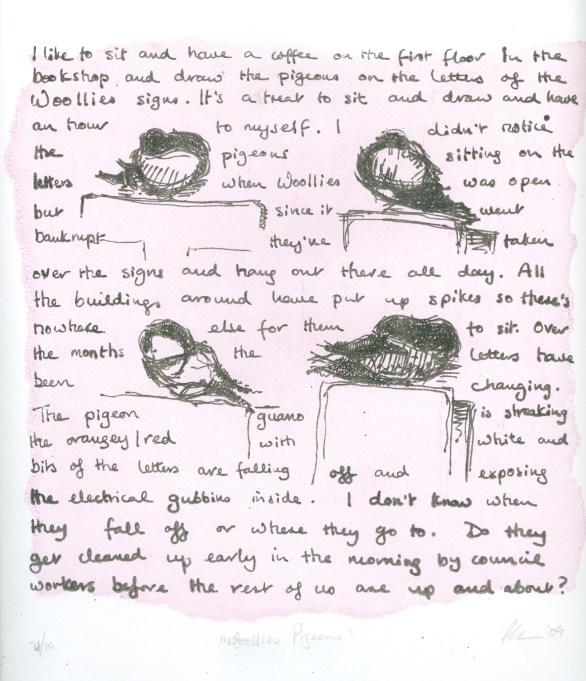 I like to sit and have a coffee on the first floor in the
bookshop and draw the pigeons on the letters of the
Woollies signs. It's a treat to sit and draw and have
an hour to myself. I didn't notice
the pigeons sitting on the
letters when Woollies was open
but since it went
bankrupt they've taken
over the signs and hang out there all day. All
the buildings around have put up spikes so there's
nowhere else for them to sit. Over
the months the letters have
been changing.
The pigeon guano is streaking
the orangey/red with white and
bits of the letters are falling off and exposing
the electrical gubbins inside. I don't know when
they fall off or where they go to. Do they
get cleaned up early in the morning by council
workers before the rest of us are up and about?
/10 "Woollies Pigeons" '09